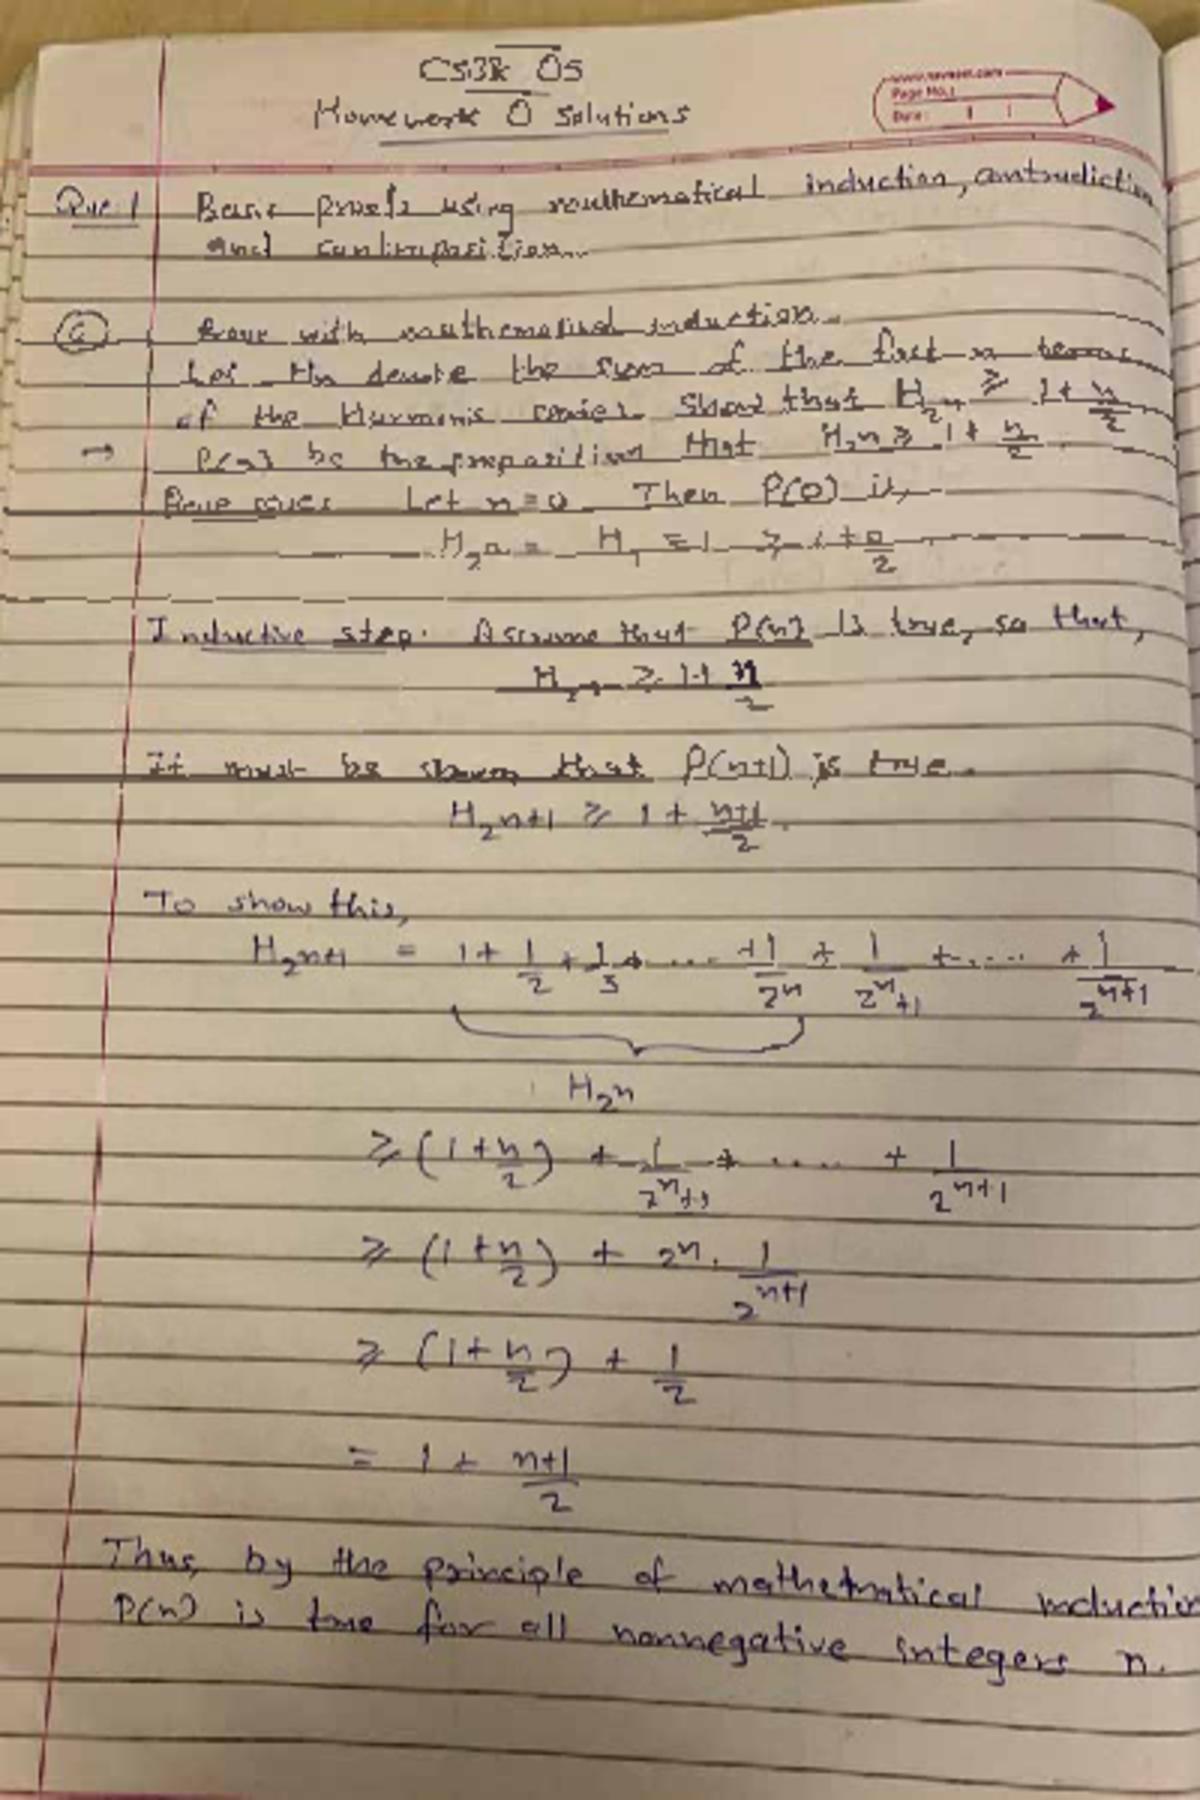 Homework 0 Solutions
www.navneet.com
Page No.:
Date:
Que 1 Basic proofs using mathematical induction, contradiction
and contraposition.
Prove with mathematical induction.
Let Hn denote the sum of the first n terms
of the Harmonic series. Show that H₂ⁿ ≥ 1 + n/2
→ P(n) be the proposition that H₂n ≥ 1 + n/2.
Let n = 0. Then P(0) is,
H₂⁰ = H₁ = 1 ≥ 1 + 0/2
Inductive step. Assume that P(n) is true, so that,
H₂ⁿ ≥ 1 + n/2
It must be shown that P(n+1) is true.
H₂n+1 ≥ 1 + n+1/2.
To show this,
H₂n+1 = 1 + 1/2 + 1/3 + .... + 1/2ⁿ + 1/2ⁿ+1 + ..... + 1/2ⁿ⁺¹
H₂n
≥ (1 + n/2) + 1/2ⁿ+1 + .... + 1/2ⁿ⁺¹
≥ (1 + n/2) + 2ⁿ · 1/2ⁿ⁺¹
≥ (1 + n/2) + 1/2
= 1 + n+1/2
Thus, by the principle of mathematical induction
P(n) is true for all nonnegative integers n.